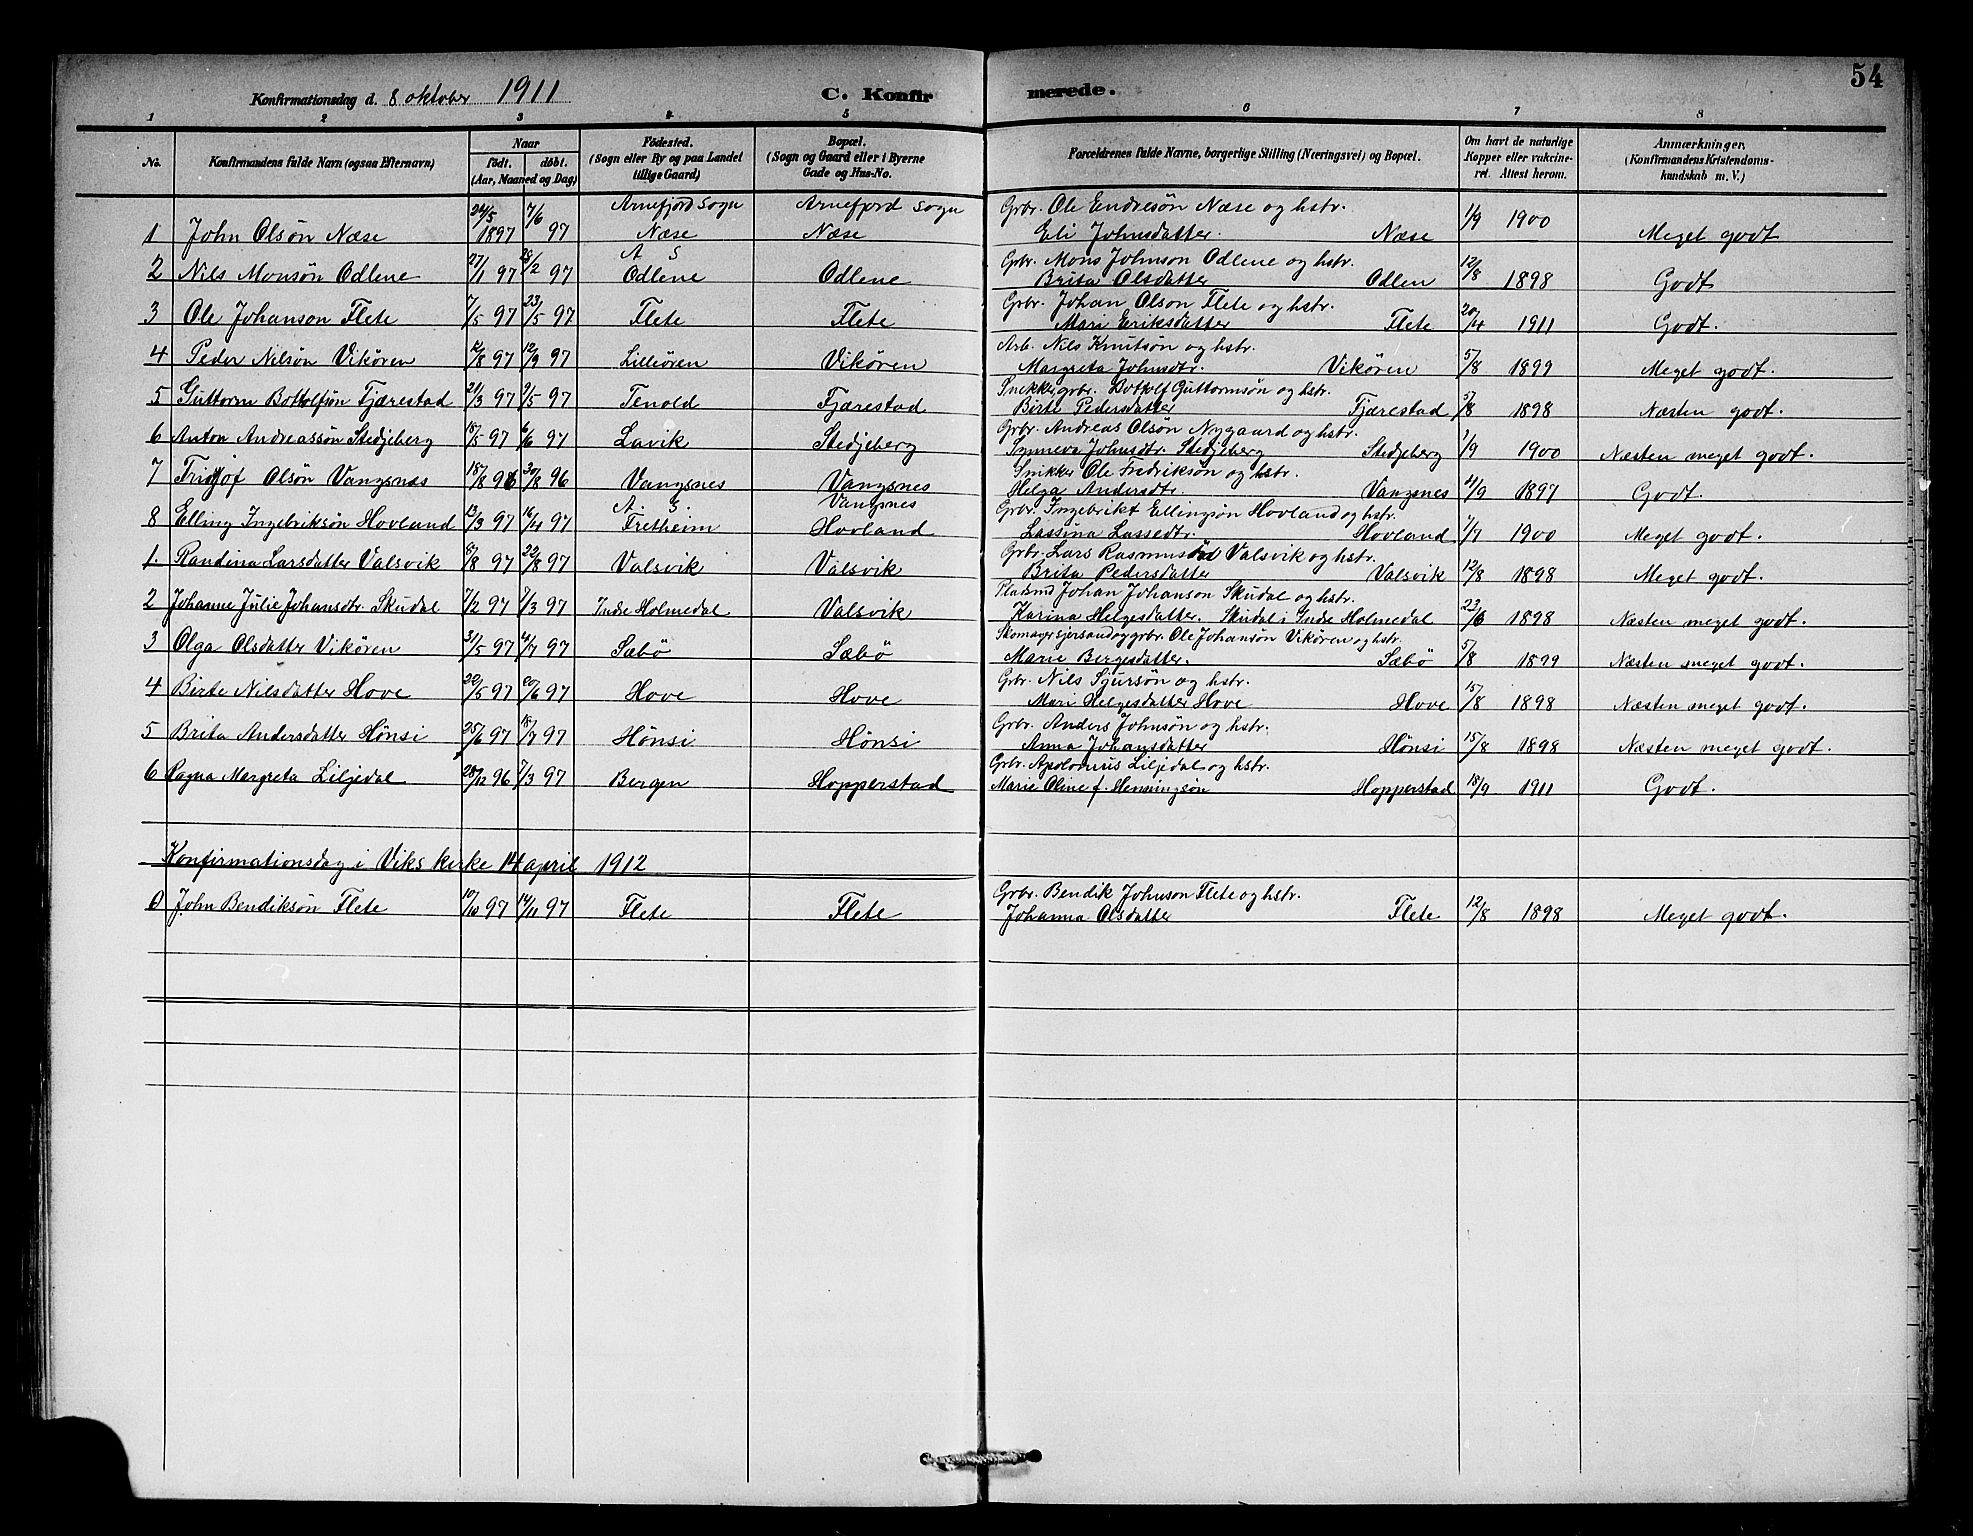 54
Konfirmationsdag d. 8 oktober 1911 C. Konfir merede.
1 2 3 4 5 6 7 8
No. Konfirmandens fulde Navn (ogsaa Efternavn) Naar födt. döbt. (Aar, Maaned og Dag) Födested. (Sogn eller By og paa Landet tillige Gaard) Bopæl. (Sogn og Gaard eller i Byerne Gade og Hus-No. Forældrenes fulde Navne, borgerlige Stilling (Næringsvei) og Bopæl. Om havt de naturlige Kopper eller vakcineret. Attest herom. Anmærkninger. (Konfirmandens Kristendomskundskab m. V.)
24/5 7/6 Arnefjord sogn Arnefjord sogn Grbr. Ole Endresön Næse og hstr.
1 John Olsön Næse 1897 97 Næse Næse Eli Johnsdatter. Næse 1/9 1900 Meget godt
A S Gbr. Mons Johnson Odlene og hstr.
2 Nils Monsön Odlene 27/1 97 28/2 97 Odlene Odlene Brita Olsdatter Odlen 12/8 1898 Godt
Grbr. Johan Olson Flete og hstr.
3 Ole Johanson Flete 7/5 97 23/5 97 Flete Flete Mari Eriksdatter Flete 20/4 1911 Godt.
Arb. Nils Knutsön og hstr.
4 Peder Nilsön Vikören 12/8 97 12/9 97 Lilleören Vikören Margreta Johnsdtr. Vikören 5/8 1899 Meget godt.
Snekker, grbr. Botholf Guttormsön og hstr.
5 Guttorm Botholfsön Fjærestad 21/3 97 9/5 97 Tenold Fjærestad Birte Pedersdatter Fjærestad 5/8 1898 Næsten godt.
Grbr. Andreas Olsön Nygaard og hstr.
6 Anton Andreassön Stedjeberg 18/5 97 6/6 97 Lavik Stedjeberg Synneva Johnsdtr. Stedjeberg Stedjeberg 1/9 1900 Næsten meget godt.
Snikker Ole Fredriksön og hstr.
7 Fridjof Olsön Vangsnæs 18/8 96 30/8 96 Vangsnes Vangsnes Helga Andersdtr. Vangsnes 4/9 1897 Godt.
A. S. Vangsnes Grbr. Ingebrikt Ellingsön Hovland og hstr.
8 Elling Ingebriksön Hovland 13/3 97 16/4 97 Fretheim Hovland Lassina Lassedtr. Hovland 7/7 1900 Meget godt.
Grbr. Lars Rasmusön Valsvik og hstr.
1. Randina Larsdatter Valsvik 8/8 97 22/8 97 Valsvik Valsvik Brita Pedersdatter Valsvik 12/8 1898 Meget godt.
Pladsmd Johan Johanson Skudal og hstr.
2 Johanne Julie Johansdtr. Skudal 7/2 97 7/3 97 Indre Holmedal Valsvik Karina Helgesdatter. Skudal i Indre Holmedal 23/6 1898 Næsten meget godt.
Ole Johansön Vikören og hstr.
3 Olga Olsdatter Vikören 31/5 97 4/7 97 Sæbö Sæbö Marie Bergesdatter. Sæbö 5/8 1899 Næsten meget godt.
Grbr. Nils Sjursön og hstr.
4 Birte Nilsdatter Hove 22/5 97 20/6 97 Hove Hove Mari Helgesdatter Hove Hove 15/8 1898 Næsten meget godt.
Grbr. Anders Johnsön og hstr.
5 Brita Andersdatter Hönsi 25/6 97 18/7 97 Hönsi Hönsi Anna Johansdatter Hönsi 15/8 1898 Næsten meget godt.
Grbr. Apolonius Liljedal og hstr.
6 Ragna Margreta Liljedal 28/12 96 7/3 97 Bergen Hopperstad Marie Oline f. Henningsön Hopperstad 18/9 1911 Godt.
Konfirmationsdag i Viks kirke 14 april 1912
Grbr. Bendik Johnson Flete og hstr.
0 John Bendiksön Flete 10/10 97 14/11 97 Flete Flete Johanna Olsdatter Flete 12/8 1898 Meget godt.